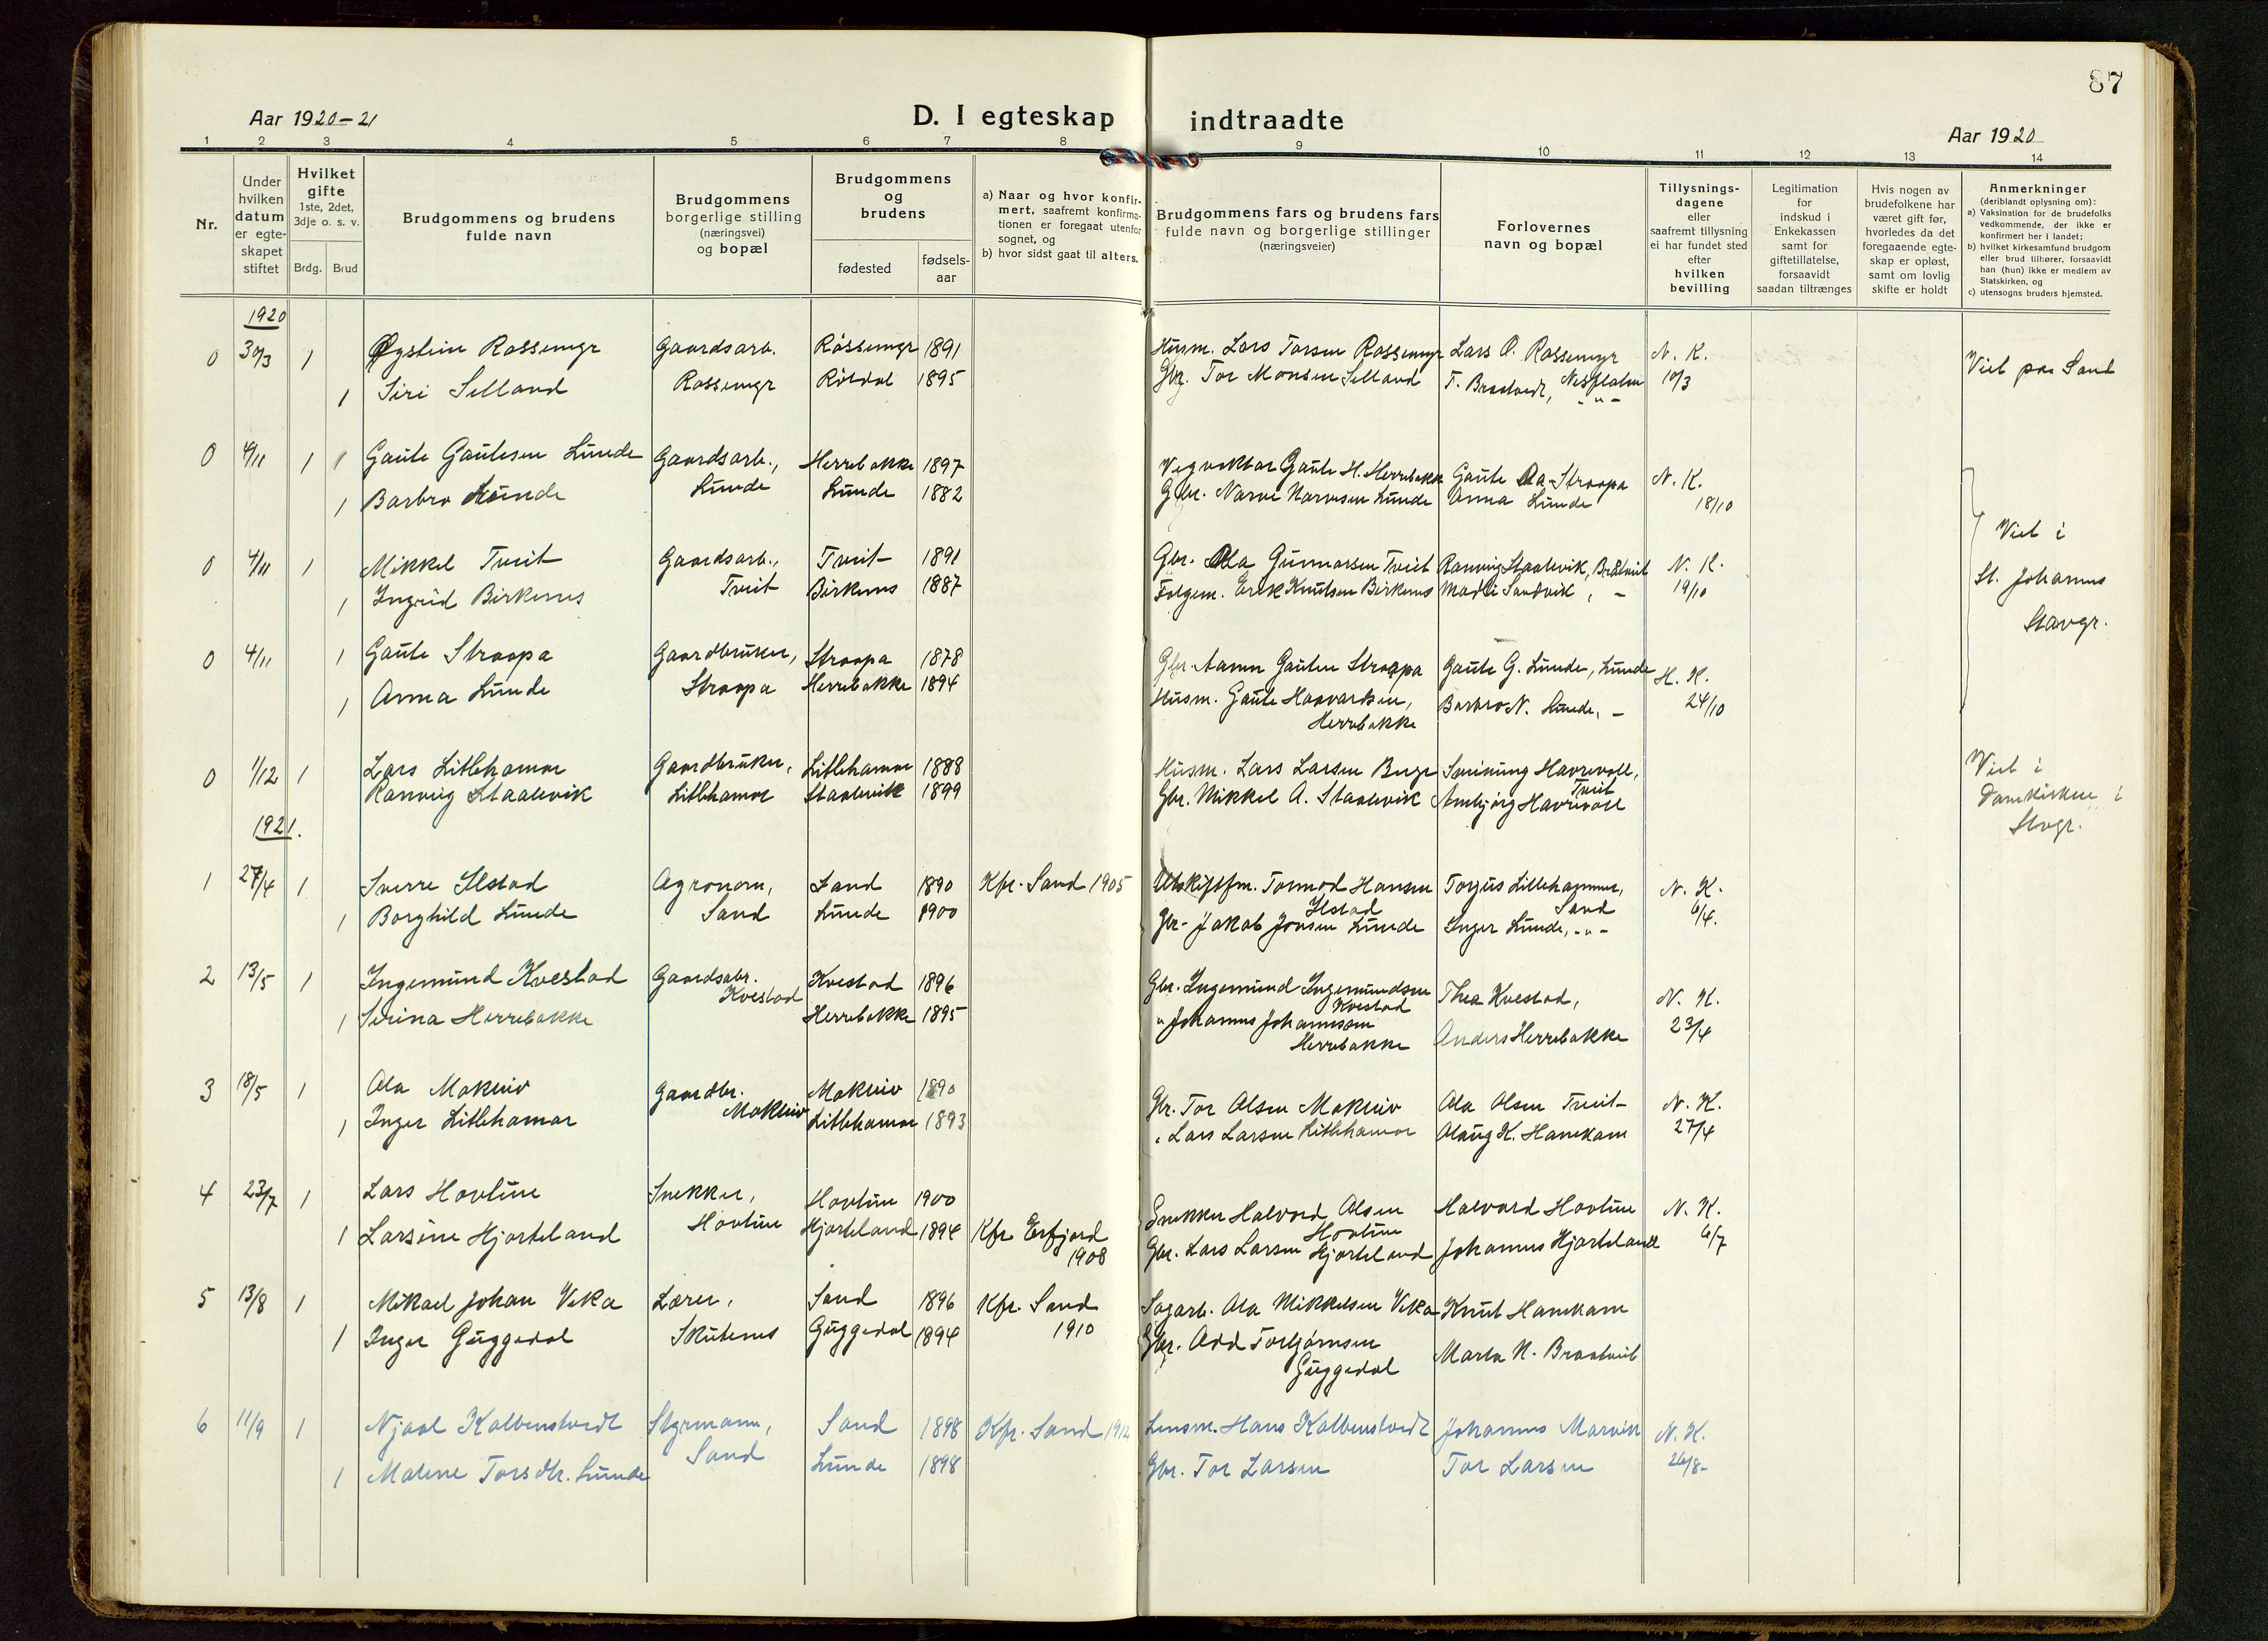 87
Aar 1920-21
D. I egteskap indtraadte
Aar 1920
1 2 3 4 5 6 7 8 9 10 11 12 13 14
Nr.
Under hvilken datum er egteskapet stiftet
Hvilket gifte 1ste, 2det, 3dje o. s. v.
Brdg. Brud
Brudgommens og brudens fulde navn
Brudgommens borgerlige stilling (næringsvei) og bopæl
Brudgommens og brudens
fødested
fødsels-aar
a) Naar og hvor konfirmert, saafremt konfirmationen er foregaat utenfor sognet, og
b) hvor sidst gaat til alters.
Brudgommens fars og brudens fars fulde navn og borgerlige stillinger (næringsveier)
Forlovernes navn og bopæl
Tillysningsdagene eller saafremt tillysning ei har fundet sted efter hvilken bevilling
Legitimation for indskud i Enkekassen samt for giftetillatelse, forsaavidt saadan tiltrænges
Hvis nogen av brudefolkene har været gift før, hvorledes da det foregaaende egteskap er opløst, samt om lovlig skifte er holdt
Anmerkninger (deriblandt oplysning om):
a) Vaksination for de brudefolks vedkommende, der ikke er konfirmert her i landet;
b) hvilket kirkesamfund brudgom eller brud tilhører, forsaavidt han (hun) ikke er medlem av Statskirken, og
c) utensogns bruders hjemsted.
1920
0 30/3 1 Øystein Rossemyr Gaardsarb. Røssemyr 1891 Husm. Lars Torsen Rossemyr Lars O. Rossemyr N. K. Viet paa Sand
1 Siri Selland Rossemyr Røldal 1895 Gbr. Tor Monsen Selland T. Bratveit, Nesflaten 10/3
0 4/11 1 Gaute Gautesen Lunde Gaardsarb., Herrebakke 1897 Vegvokter Gaute H. Herrebakke Gaute Aa. Straapa N. K.
1 Barbro Lunde Lunde Lunde 1882 Gbr. Narve Narvesen Lunde Anna Lunde 18/10
0 4/11 1 Mikkel Tveit Gaardsarb., Tveit 1891 Gbr. Ola Gunnarsen Tveit Ranveig Staalevik, Bratveit N. K.
1 Ingrid Birkenes Tveit Birkenes 1887 Folgem. Erik Knutsen Birkenes Madli Sandvik, - 19/10
Viet i St. Johannes Stavgr.
0 4/11 1 Gaute Straapa Gaardbruker, Straapa 1878 Gbr. Aamn Gautesen Straapa Gaute G. Lunde, Lunde N. K.
1 Anna Lunde Straapa Herrebakke 1894 Husm. Gaute Haavardsen, Herrebakke Barbro N. Lunde, - 24/10
0 1/12 1 Lars Litlehamar Gaardbruker, Litlehamar 1888 Husm. Lars Larsen Berge Sveinung Havrevoll, Tveit Viet i
Ranveig Staalevik Litlehamar Staalevik 1899 Gbr. Mikkel A. Staalevik Ambjørg Havrevoll Domkirken i Stvgr.
1921.
1 27/4 1 Sverre Ilstad Agronom, Sand 1890 Kfr. Sand 1905 Utskiftsfm. Tormod Hansen Ilstad Torjus Litlehammer, Sand N. K.
1 Borghild Lunde Sand Lunde 1900 Gbr. Jakob Jonsen Lunde Inger Lunde, -"- 6/4.
2 13/5 1 Ingemund Kvestad Gaardsabr. Kvestad Kvestad 1896 Gbr. Ingemund Ingemundsen Kvestad Thea Kvestad, N. K.
1 Serina Herrebakke Herrebakke 1895 " Johannes Johannesen Herrebakke Anders Herrebakke 23/4
3 18/5 1 Ola Mokleiv Gaardbr. Mokleiv Mokleiv 1890 Gbr. Tor Olsen Mokleiv Ola Olsen Tveit N. K.
1 Inger Litlehamar Litlehamar 1893 " Lars Larsen Litlehamar Olaug K. Hanekam 27/4
4 23/7 1 Lars Hovtun Snekker, Hovtun 1900 Snekker Halvard Olsen Hovtun Halvard Hovtun N. K.
1 Larsine Hjorteland Hovtun Hjorteland 1894 Kfr. Erfjord 1908 Gbr. Lars Larsen Hjorteland Johannes Hjorteland 6/7
5 13/8 1 Mikael Johan Veka Lærer, Sand 1896 Kfr. Sand 1910 Sagarb. Ola Mikkelsen Veka Knut Hanekam
1 Inger Guggedal Skutenes Guggedal 1894 Gbr. Odd Torbjørnsen Guggedal Marta N. Bratveit
6 11/9 1 Njaal Kolbenstvedt Styrmann, Sand 1898 Kfr. Sand 1912 Lensm. Hans Kolbenstvedt Johannes Marvik N. K.
1 Malene Torsdtr. Lunde Sand Lunde 1898 Gbr. Tor Larsen Tor Larsen 26/8-